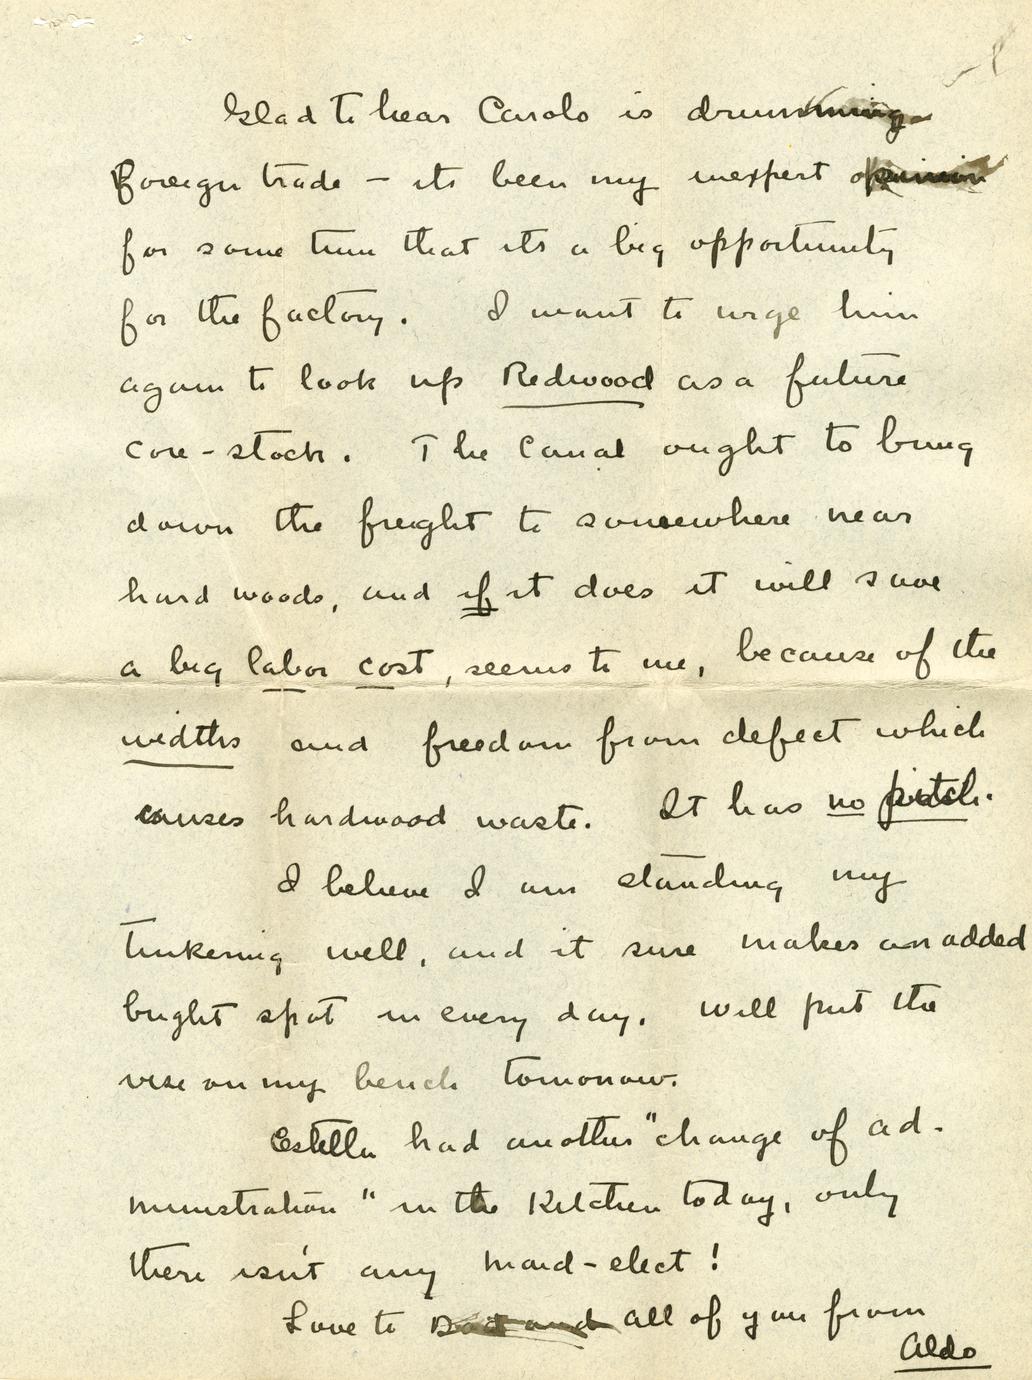 Glad to hear Carolo is drumming
Foreign trade – its been my inexpert opinion
for some time that its a big opportunity
for the factory. I want to urge him
again to look up Redwood as a future
core-stock. The Canal ought to bring
down the freight to somewhere near
hard woods, and if it does it will save
a big labor cost, seems to me, because of the
widths and freedom from defect which
causes hardwood waste. It has no pitch.
I believe I am standing my
tinkering well, and it sure makes an added
bright spot in every day. Will put the
vise on my bench tomorrow.
Estella had another "change of ad-
ministration" in the Kitchen today, only
there isn't any maid-elect!
Love to Dad and all of you from
Aldo